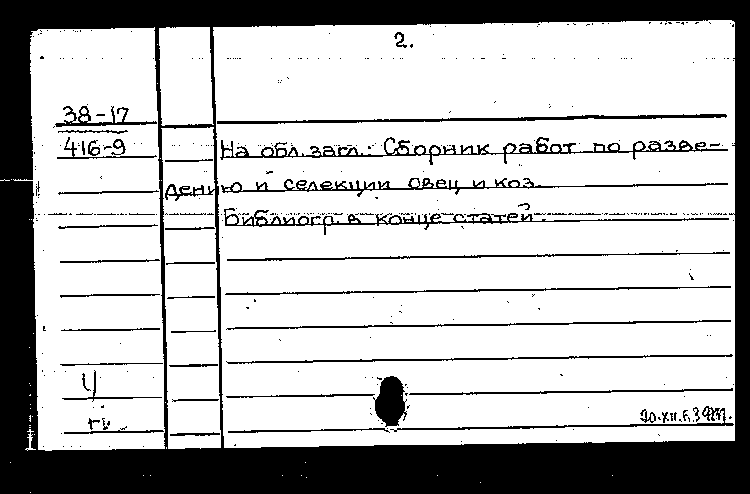 2.
38-17
416-9
На обл. загл.: Сборник работ по разве-
дению и селекции овец и коз.
Библиогр. в конце статей.
Ч